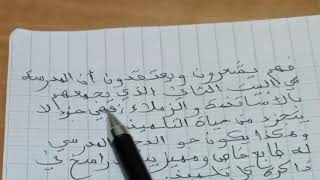 فهم يشعرون ويعتقدون أن المدرسة
هي البيت الثاني الذي يجمعهم
بالأساتذة والزملاء، فهي جزء لا
يتجزء من حياة التلميذ
وهكذا يكون جو المدرسي
له طابع خاص ومميز يبقى راسخ في
ذاكرة كل تلميذ